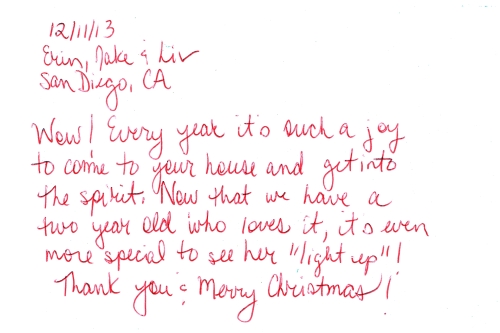 12/11/13
Erin, Jake & Liv
San Diego, CA
Wow! Every year it's such a joy
to come to your house and get into
the spirit. Now that we have a
two year old who loves it, it's even
more special to see her "light up"!
Thank you & Merry Christmas!